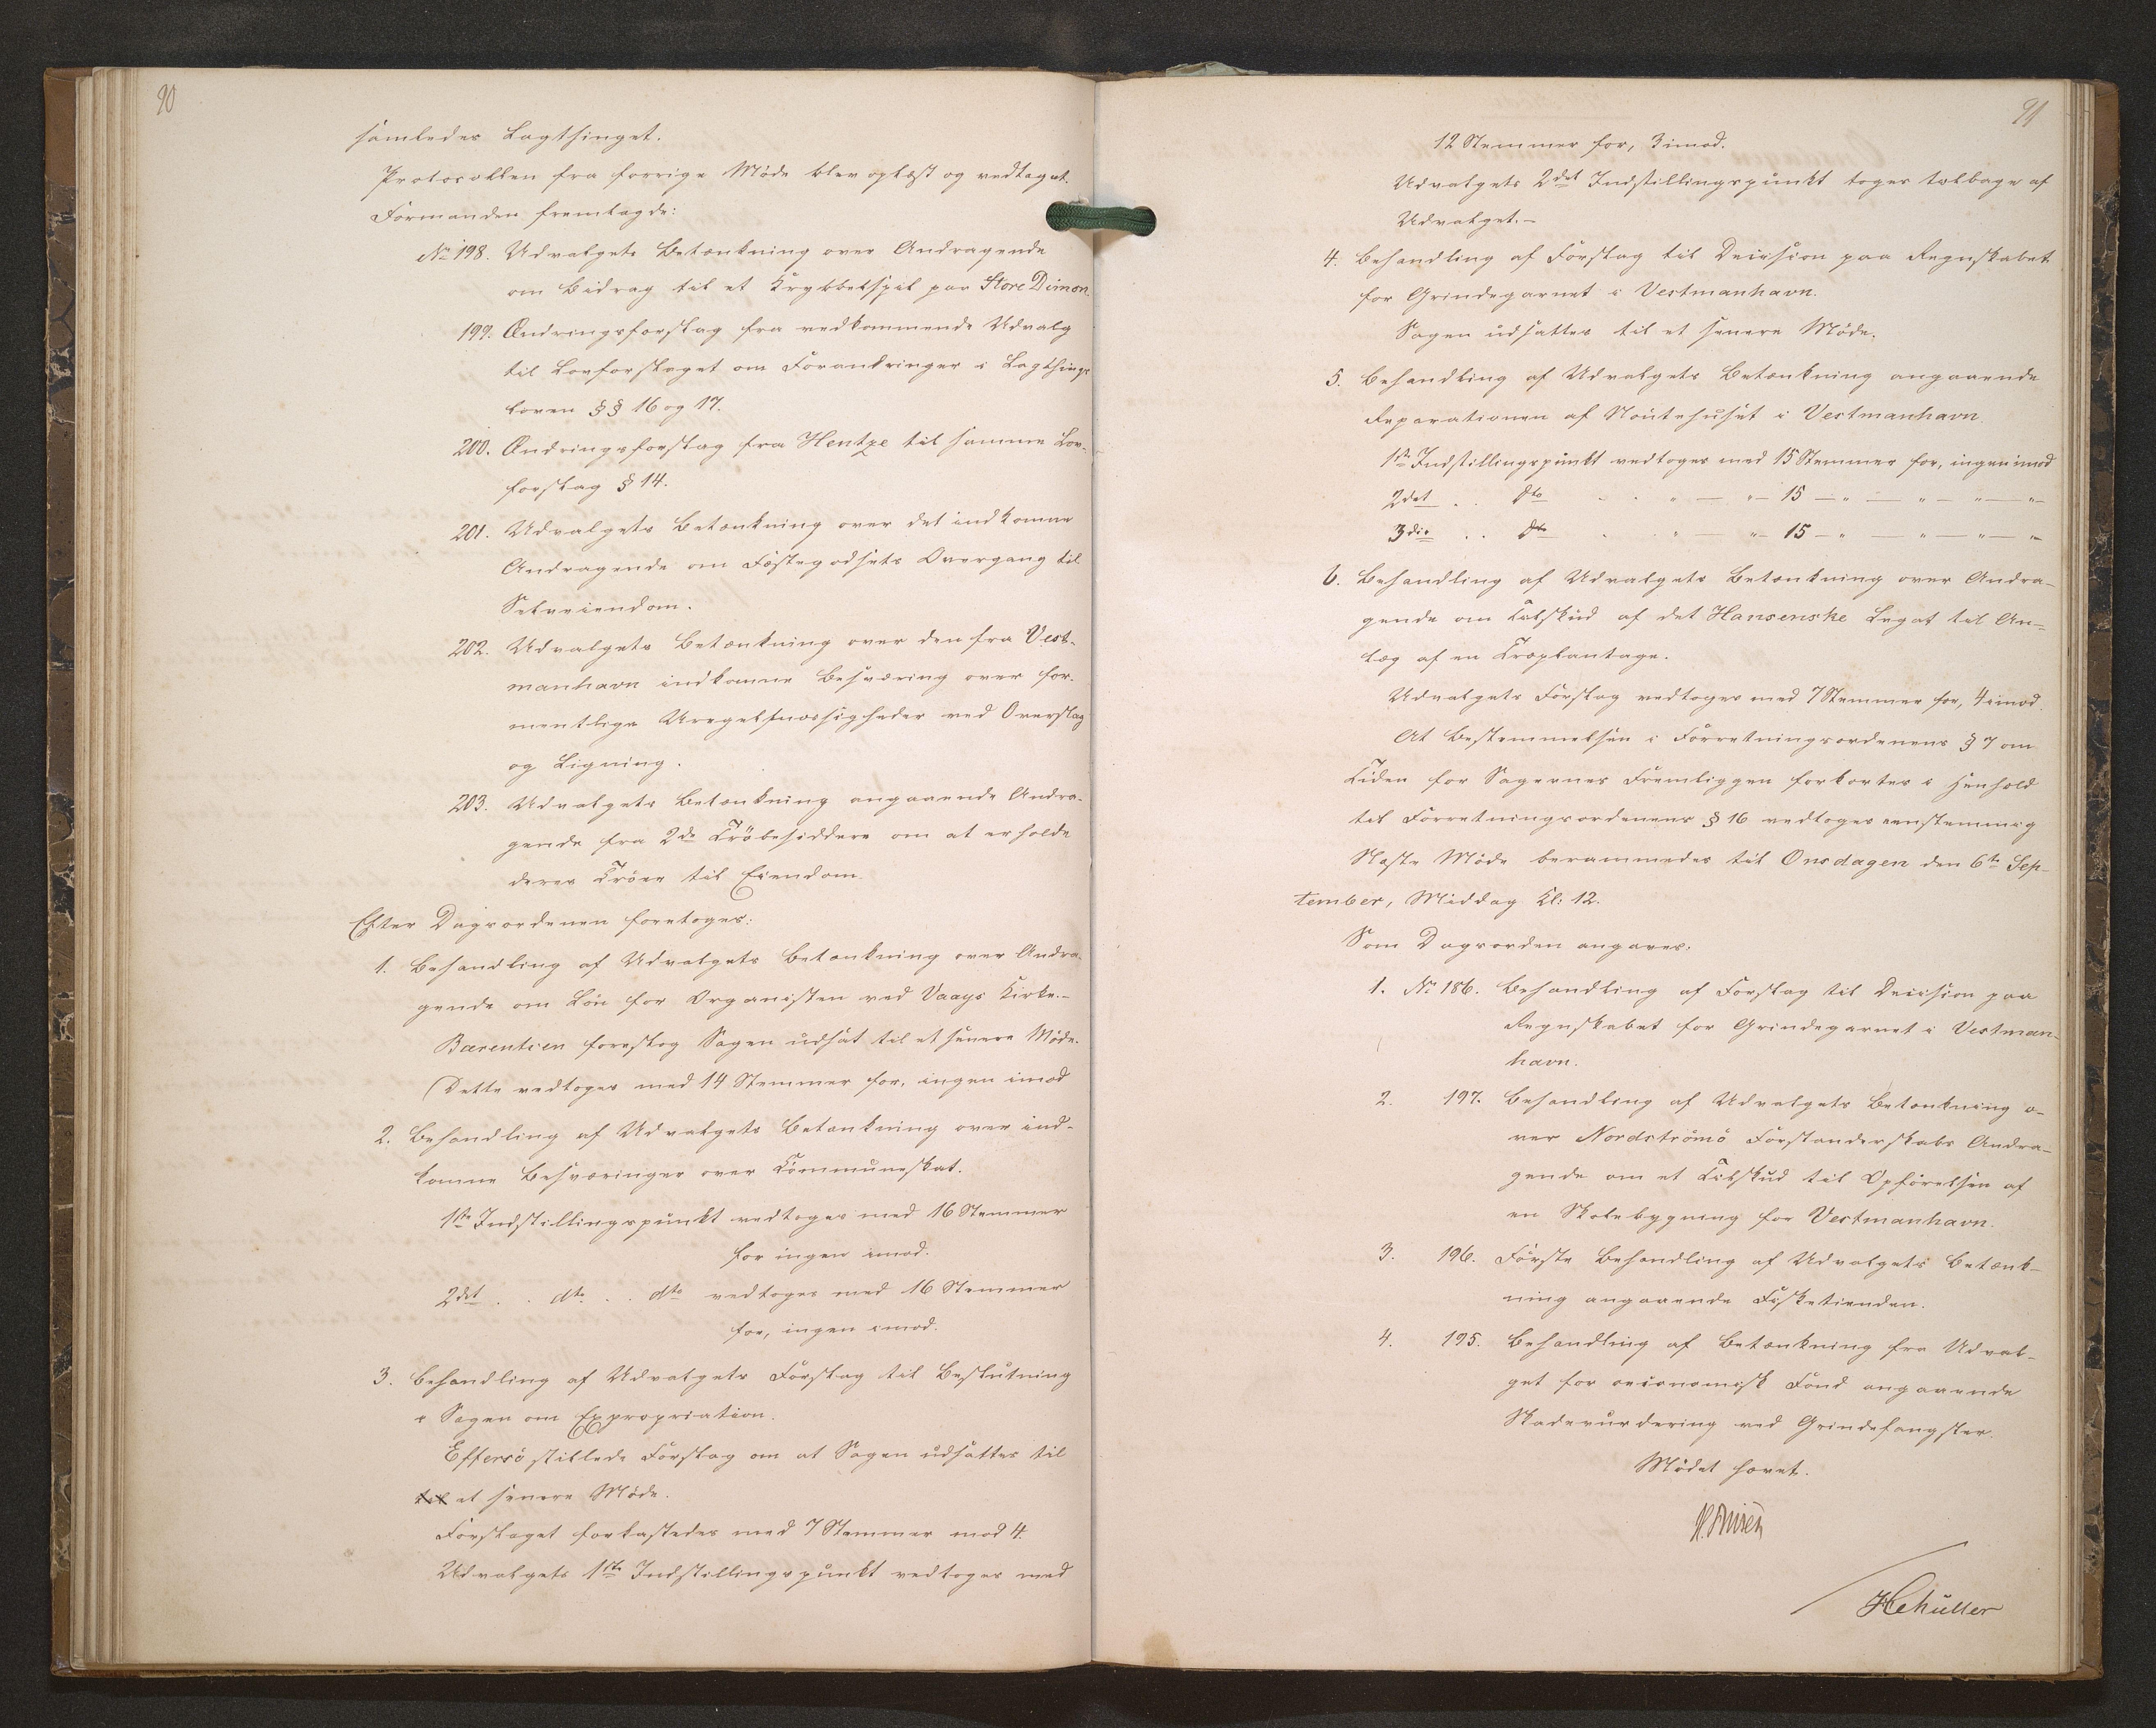 90
samledes Lagthinget.
Protocollen fra forrige Møde blev oplæst og vedtaget.
Formanden fremlagde:
No 198. Udvalgets Betænkning over Andragende
om Bidrag til et Krybbelspil paa Store Dimon.
199. Ændringsforslag fra vedkommende Udvalg
til Lovforslaget om Forandringer i Lagthings
loven §§ 16 og 17.
200. Ændringsforslag fra Hentze til samme Lov-
forslag § 14.
201. Udvalgets Betænkning over det indkomne
Andragende om Fæstegodsets Overgang til
Selveiendom.
202. Udvalgets Betænkning over den fra Vest-
manhavn indkomne Besværing over for-
mentlige Uregelmæssigheder ved Overslag
og Ligning.
203. Udvalgets Betænkning angaaende Andra-
gende fra 2de Tröbesiddere om at erholde
deres Tröer til Eiendom.
Efter Dagsordenen foretoges:
1. Behandling af Udvalgets Betænkning over Andra-
gende om Lön for Organisten ved Vaags Kirke.-
Bærentsen foreslog Sagen udsat til et senere Möde.
(Dette vedtoges med 14 Stemmer for, ingen imod
2. Behandling af Udvalgets Betænkning over ind-
komne Besværinger over Kommuneskat.
1ste Indstillingspunkt vedtoges med 16 Stemmer
for ingen imod.
2det . . dto . . dto vedtoges med 16 Stemmer
for, ingen imod.
3. Behandling af Udvalgets Forslag til Beslutning
i Sagen om Expropriation.
Effersö stillede Forslag om at Sagen udsattes til
til et senere Möde.
Forslaget forkastedes med 7 Stemmer mod 4.
Udvalgets 1ste Indstillingspunkt vedtoges med
91
12 Stemmer for, 3 imod.
Udvalgets 2det Indstillingspunkt toges tilbage af
Udvalget.-
4. Behandling af Forslag til Decision paa Regnskabet
for Grindegarnet i Vestmanhavn.
Sagen udsattes til et senere Möde.
5. Behandling af Udvalgets Betænkning angaaende
Reparationen af Nöutehuset i Vestmanhavn.
1ste Indstillingspunkt vedtoges med 15 Stemmer for, ingen imod
2det . . dto . . " — "- 15 —" — " — " — "
3die . . dto . " — "- 15 —" — " — " — "
6. Behandling af Udvalgets Betænkning over Andra-
gende om Tilskud af det Hansenske Legat til An-
læg af en Træplantage.
Udvalgets Forslag vedtoges med 7 Stemmer for, 4 imod.
At Bestemmelsen i Forretningsordenens § 7 om
Tiden for Sagernes Fremliggen forkortes i Henhold
til Forretningsordenens § 16 vedtoges eenstemmig
Næste Möde berammedes til Onsdagen den 6te Sep-
tember, Middag Kl: 12.
Som Dagsorden angaves:
1. No 186. Behandling af Forslag til Decision paa
Regnskabet for Grindegarnet i Vestman-
havn.
2. 197. Behandling af Udvalgets Betænkning o-
ver Nordströmö Forstanderskabs Andra-
gende om et Tilskud til Opförelsen af
en Skolebygning for Vestmanhavn.
3. 196. Förste Behandling af Udvalgets Betænk-
ning angaaende Fisketienden.
4. 195. Behandling af Betænkning fra Udval-
get for oeconomisk Fond angaaende
Skadevurdering ved Grindefangster.
Mödet hævet.
HCMüller